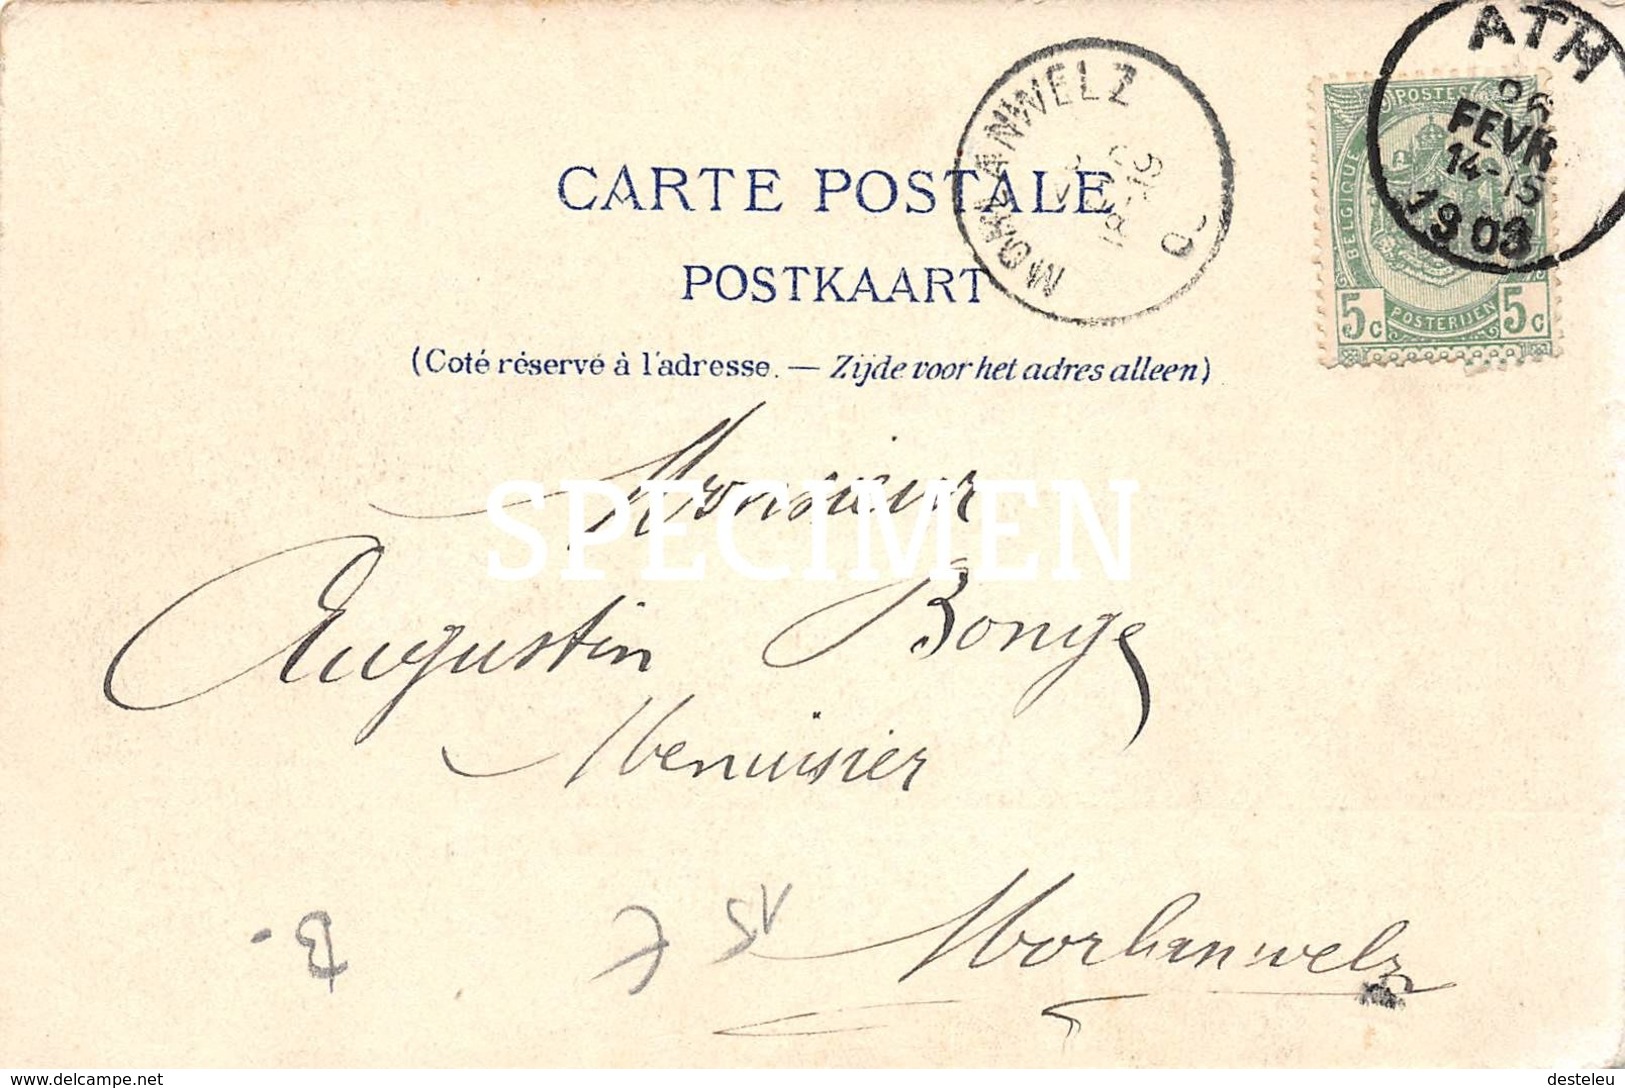 ATH
06
FEVR
14-15
1903
MORLANWELZ
POSTES
BELGIQUE
5c POSTERIJEN 5c
CARTE POSTALE
POSTKAART
(Coté réservé à l'adresse. — Zijde voor het adres alleen)
Monsieur
SPECIMEN
Augustin Bonge
Menuisier
Morlanwelz
15 €
B-
http://www.delcampe.net
desteleu